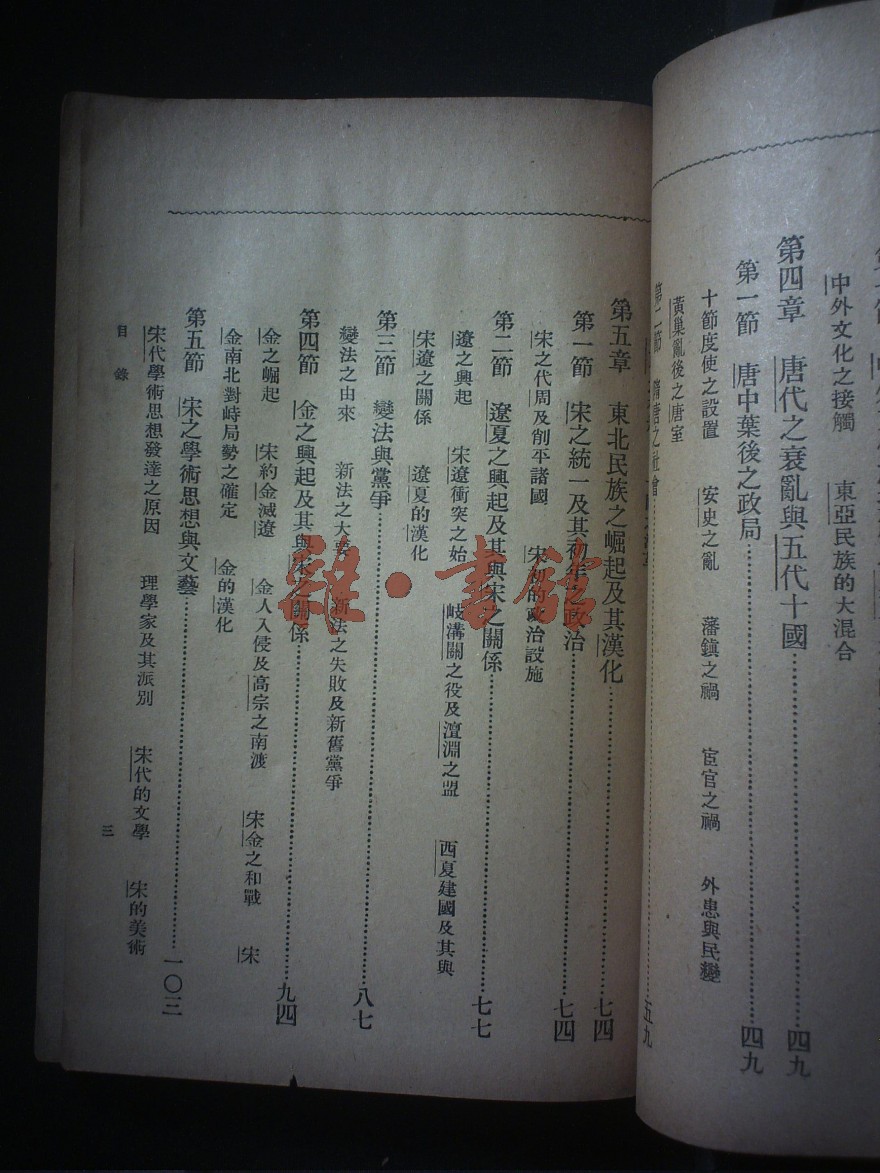 中外文化之接觸　東亞民族的大混合
第四章　唐代之衰亂與五代十國……四九
第一節　唐中葉後之政局……四九
十節度使之設置　安史之亂　藩鎮之禍　宦官之禍　外患與民變
黃巢亂後之唐室
第二節　隋唐之社會……五九
第五章　東北民族之崛起及其漢化……七四
第一節　宋之統一及其初年之政治……七四
宋之代周及削平諸國　宋初的政治設施
第二節　遼夏之興起及其與宋之關係……七七
遼之興起　宋遼衝突之始　岐溝關之役及澶淵之盟　西夏建國及其與
宋遼之關係　遼夏的漢化
第三節　變法與黨爭……八七
變法之由來　新法之大要　新法之失敗及新舊黨爭
第四節　金之興起及其與宋之關係……九四
金之崛起　宋約金滅遼　金人入侵及高宗之南渡　宋金之和戰　宋
金南北對峙局勢之確定　金的漢化
第五節　宋之學術思想與文藝……一〇三
宋代學術思想發達之原因　理學家及其派別　宋代的文學　宋的美術
目錄　三
雜·書館